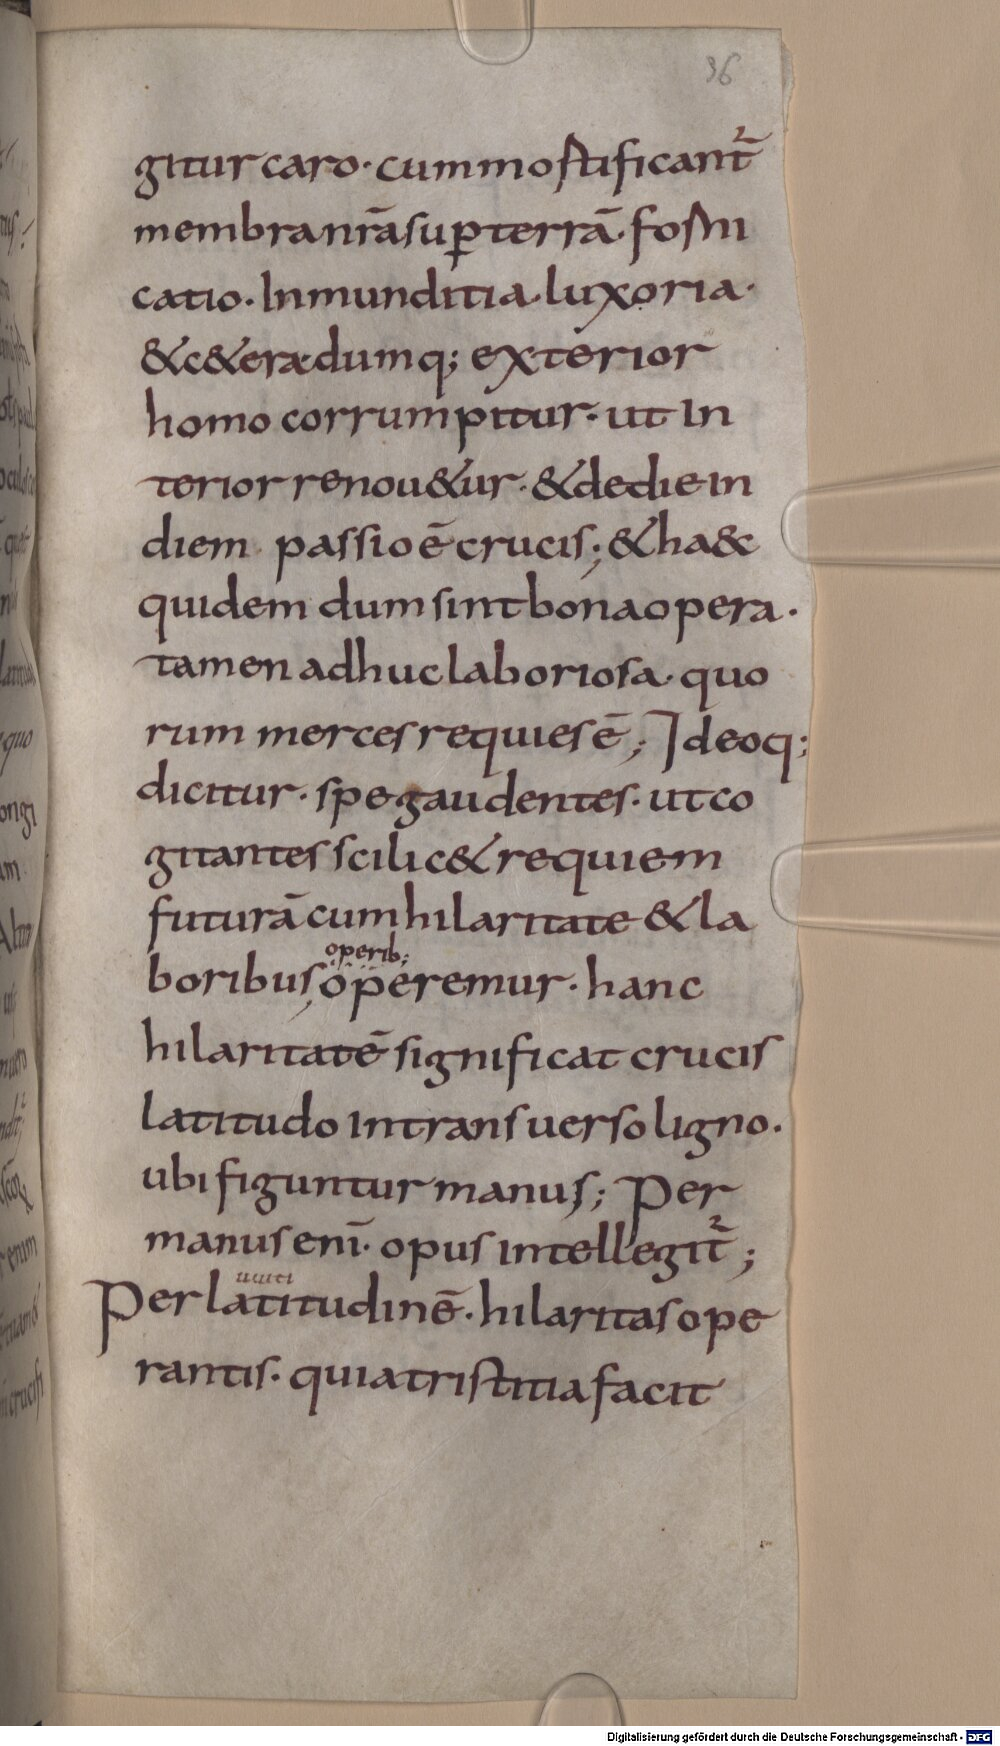 36
gitur caro· cum mortificant᷑
membra nr̄a sup̲ terrā· forni
catio· Inmunditia· luxoria·
&c&eræ dumq; exterior
homo corrumpitur· ut In
terior renou&ur· & dedie In
diem passio ē crucis; & ha&c
quidem dum sint bona opera·
tamen adhuc laboriosa· quo
rum merces requies ē; Ideoq;
dicitur· spe gaudentes· ut co
gitantes scilic& requiem
futurā cum hilaritate & la
operib;
boribus operemur· hanc
hilaritatē significat crucis
latitudo Intransuerso ligno·
ubi figuntur manus; Per
manus enī· opus intellegit᷑;
Per latitudinē· hilaritas ope
rantis· quia tristitia facit
Digitalisierung gefördert durch die Deutsche Forschungsgemeinschaft - DFG